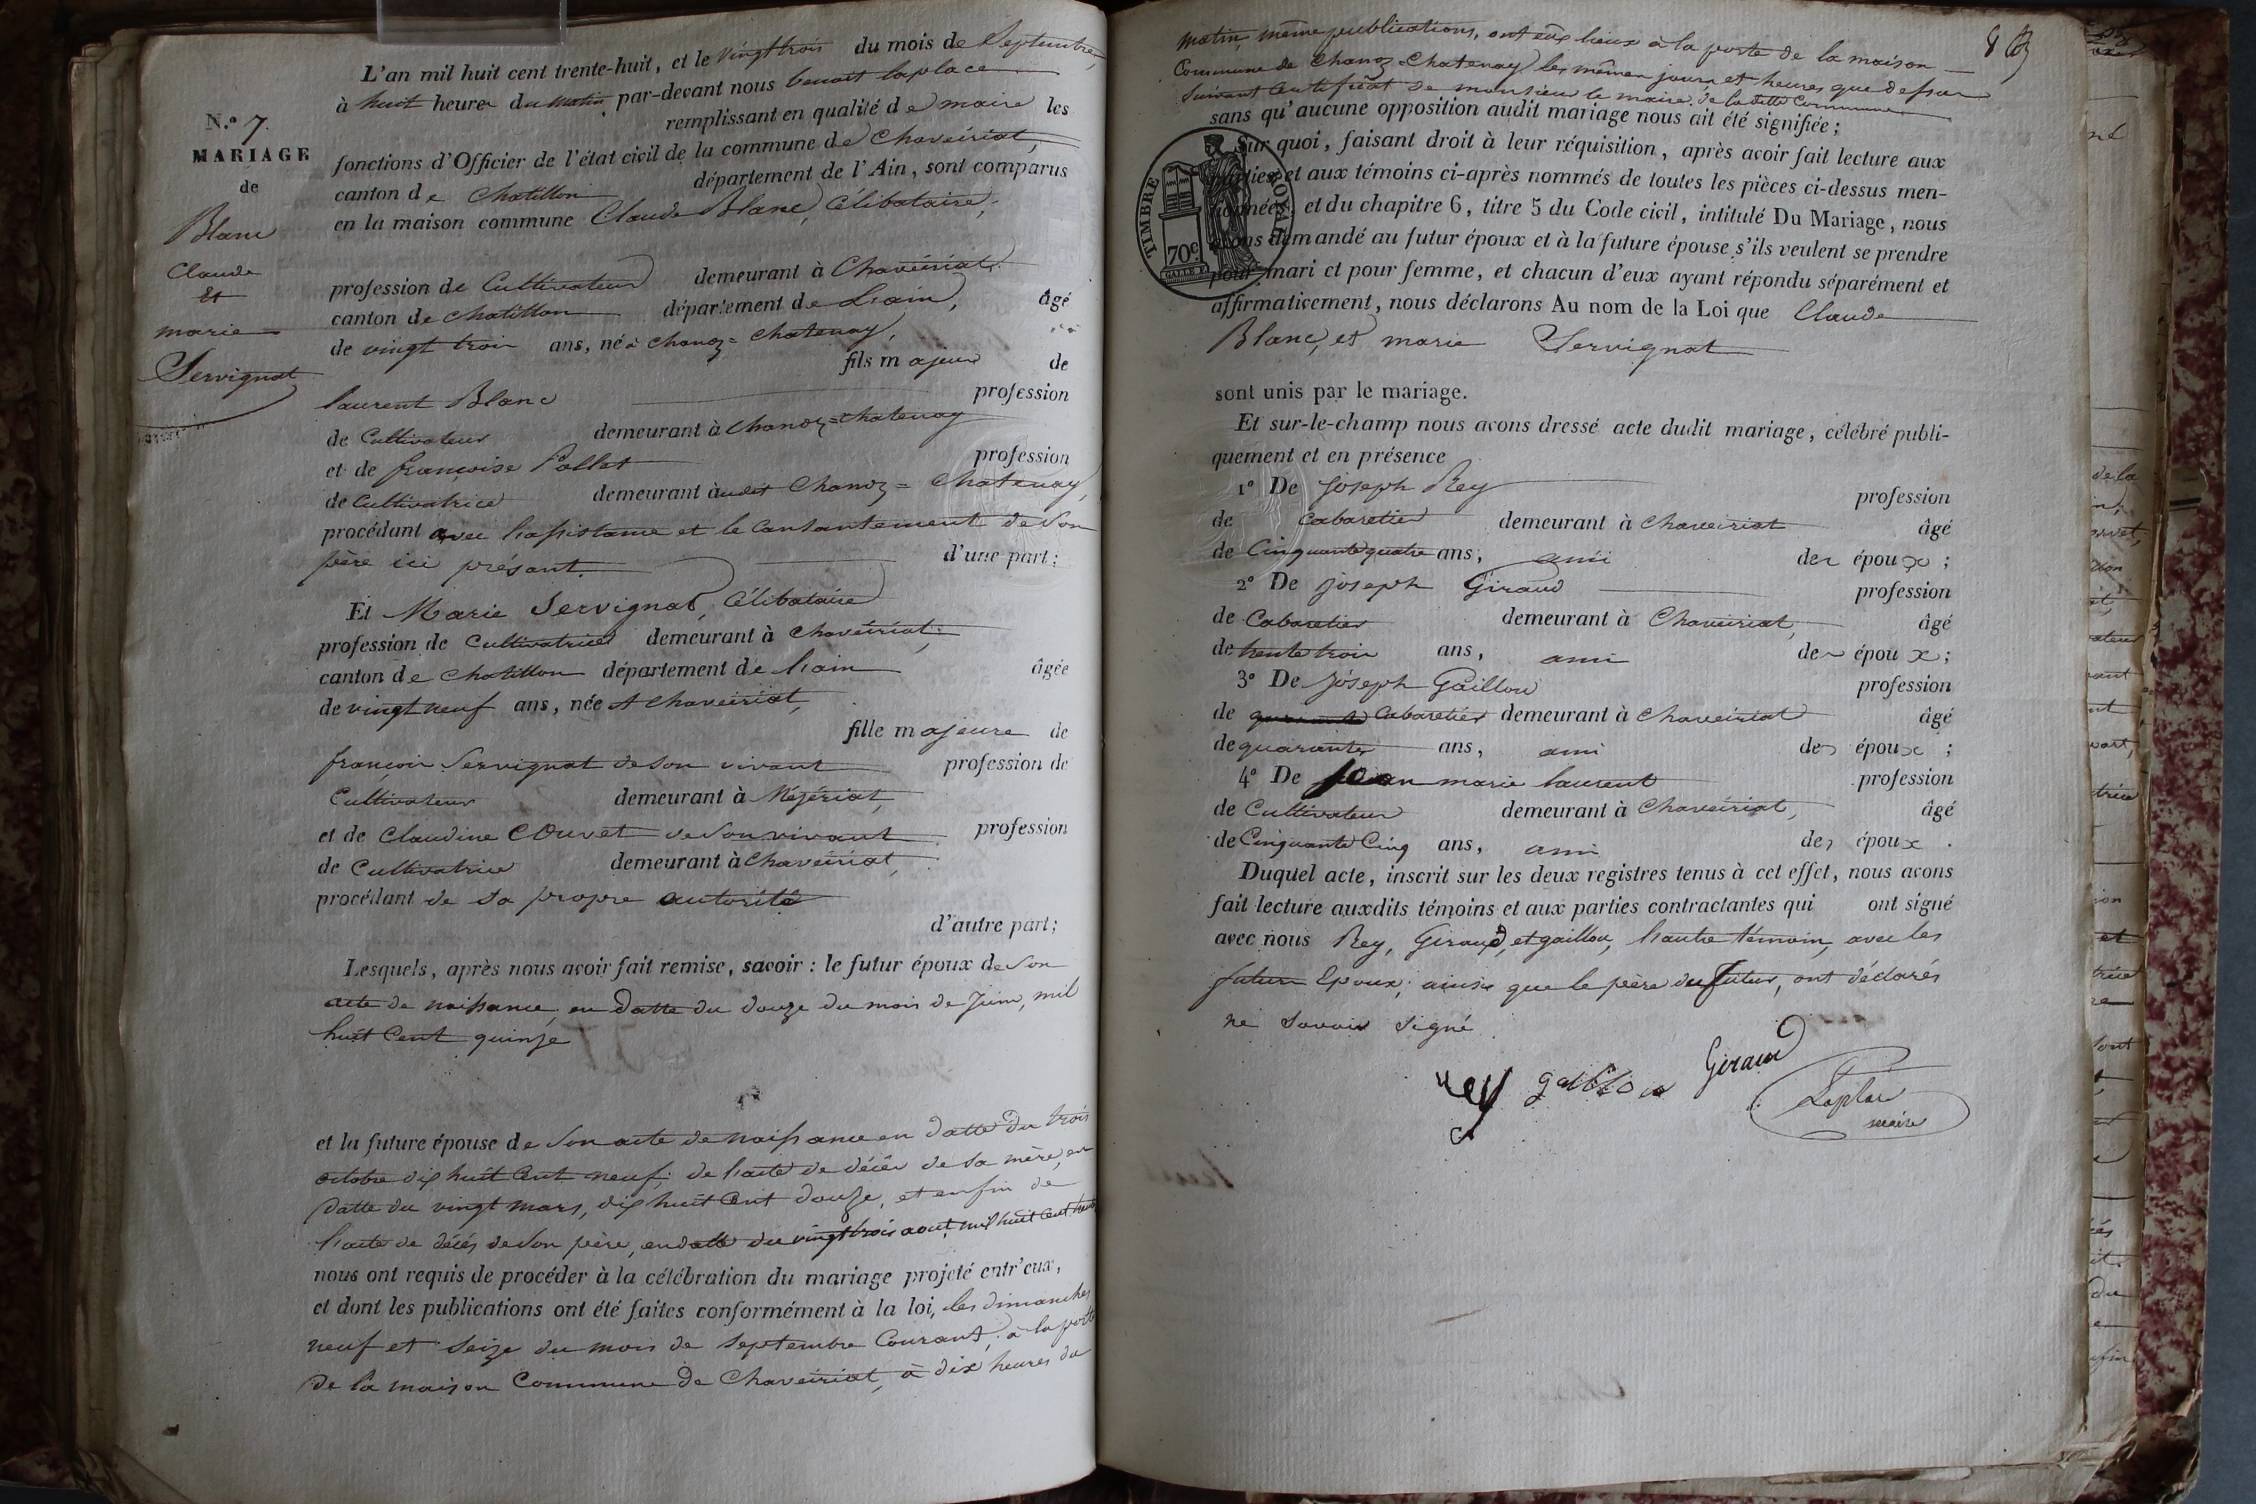 N.° 7.
MARIAGE
de
Blanc
Claude
Et
marie
Servignat
L'an mil huit cent trente-huit, et le vingt trois du mois de Septembre,
à huit heures du matin par-devant nous benoit laplace
remplissant en qualité de maire les
fonctions d'Officier de l'état civil de la commune de Chaveiriat,
canton de Chatillon département de l'Ain, sont comparus
en la maison commune Claude Blanc, Célibataire,
profession de Cultivateur demeurant à Chaveiriat,
canton de Chatillon département de L'ain, âgé
de vingt trois ans, né à chanoz = chatenay,
fils majeur de
laurent Blanc profession
de Cultivateur demeurant à Chanoz = chatenay
et de françoise Pollet profession
de Cultivatrice demeurant audit Chanoz = Chatenay,
procédant avec l'assistance et le consantement de son
père ici présant. d'une part;
Et Marie Servignat, Célibataire
profession de Cultivatrice demeurant à Chaveiriat,
canton de Chatillon département de l'ain âgée
de vingt neuf ans, née A Chaveiriat,
fille majeure de
françois Servignat de son vivant profession de
Cultivateur demeurant à Mézériat,
et de Claudine Couvet de son vivant profession
de Cultivatrice demeurant à Chaveiriat,
procédant de sa propre autorité
d'autre part;
Lesquels, après nous avoir fait remise, savoir: le futur époux de son
acte de naissance, en datte du douze du mois de Juin, mil
huit Cent quinze
et la future épouse de son acte de naissance en datte du trois
octobre dix huit Cent neuf; de l'acte de décès de sa mère, en
datte du vingt mars, dix huit Cent douze, et enfin de
l'acte de décès de son père, en datte du vingt trois aout, mil huit Cent
nous ont requis de procéder à la célébration du mariage projeté entr'eux,
et dont les publications ont été faites conformément à la loi, les dimanches
neuf et seize du mois de septembre Courant, à la porte
De la maison Commune de Chaveiriat, à dix heures du
matin, même publications, ont eûs lieux à la porte de la maison
Commune de Chanoz-Chatenay les mêmes jours et heures que dessus
suivant Certificat de monsieur le maire de ladite Commune
sans qu'aucune opposition audit mariage nous ait été signifiée;
TIMBRE ROYAL
70c
Sur quoi, faisant droit à leur réquisition, après avoir fait lecture aux
parties et aux témoins ci-après nommés de toutes les pièces ci-dessus men-
tionnées, et du chapitre 6, titre 5 du Code civil, intitulé Du Mariage, nous
avons demandé au futur époux et à la future épouse s'ils veulent se prendre
pour mari et pour femme, et chacun d'eux ayant répondu séparément et
affirmativement, nous déclarons Au nom de la Loi que Claude
Blanc, et marie Servignat
sont unis par le mariage.
Et sur-le-champ nous avons dressé acte dudit mariage, célébré publi-
quement et en présence
1° De Joseph Rey profession
de cabaretier demeurant à Chaveiriat âgé
de Cinquante quatre ans, ami des époux;
2° De joseph Giraud profession
de Cabaretier demeurant à Chaveiriat, âgé
de trente trois ans, ami des époux;
3° De Joseph Gaillou profession
de Cabaretier demeurant à Chaveiriat âgé
de quarante ans, ami des époux;
4° De jean marie laurent profession
de Cultivateur demeurant à Chaveiriat, âgé
de Cinquante Cinq ans, ami des époux.
Duquel acte, inscrit sur les deux registres tenus à cet effet, nous avons
fait lecture auxdits témoins et aux parties contractantes qui ont signé
avec nous Rey, Giraud, et gaillou, l'autre témoin, avec les
futurs Epoux, ainsi que le père du futur, ont déclarés
ne savoir signé.
rey gaillou Giraud
Laplace
maire